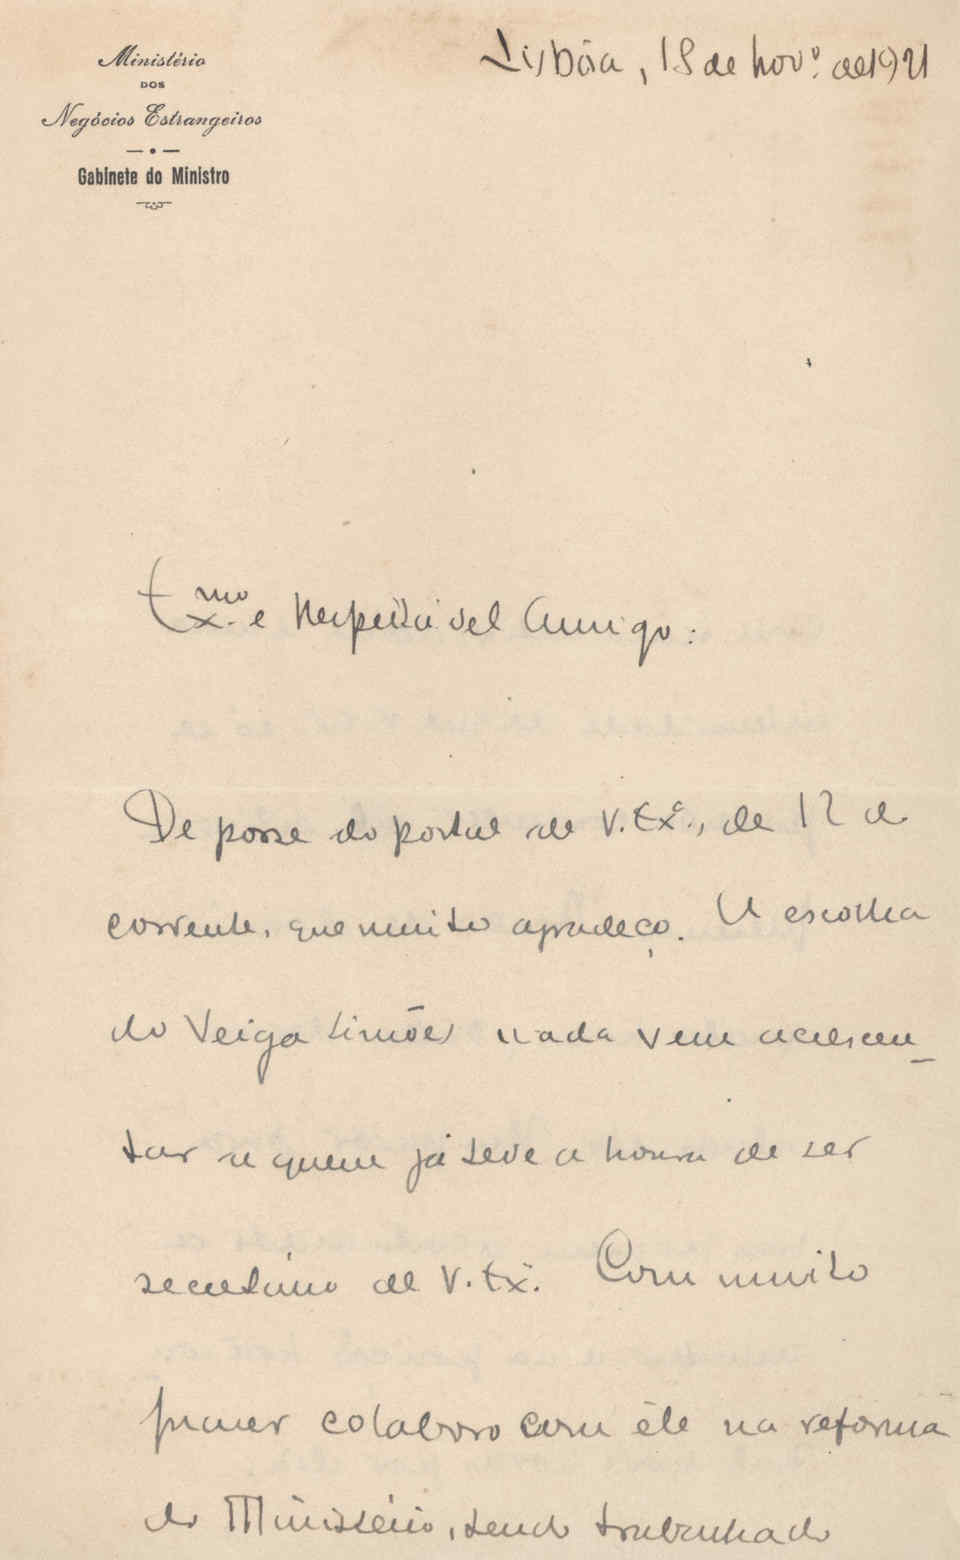 Ministério
DOS
Negócios Estrangeiros
Gabinete do Ministro
Lisbôa, 18 de Nov.º de 1921
Ex.mo e Respeitável Amigo:
De posse do postal de V. Ex.ª, de 12 do
corrente, que muito agradeço. A escolha
do Veiga Simões nada vem acrescen-
tar a quem já teve a honra de ser
secretário de V. Ex.ª. Com muito
prazer colaboro com êle na reforma
do Ministério, tendo trabalhado